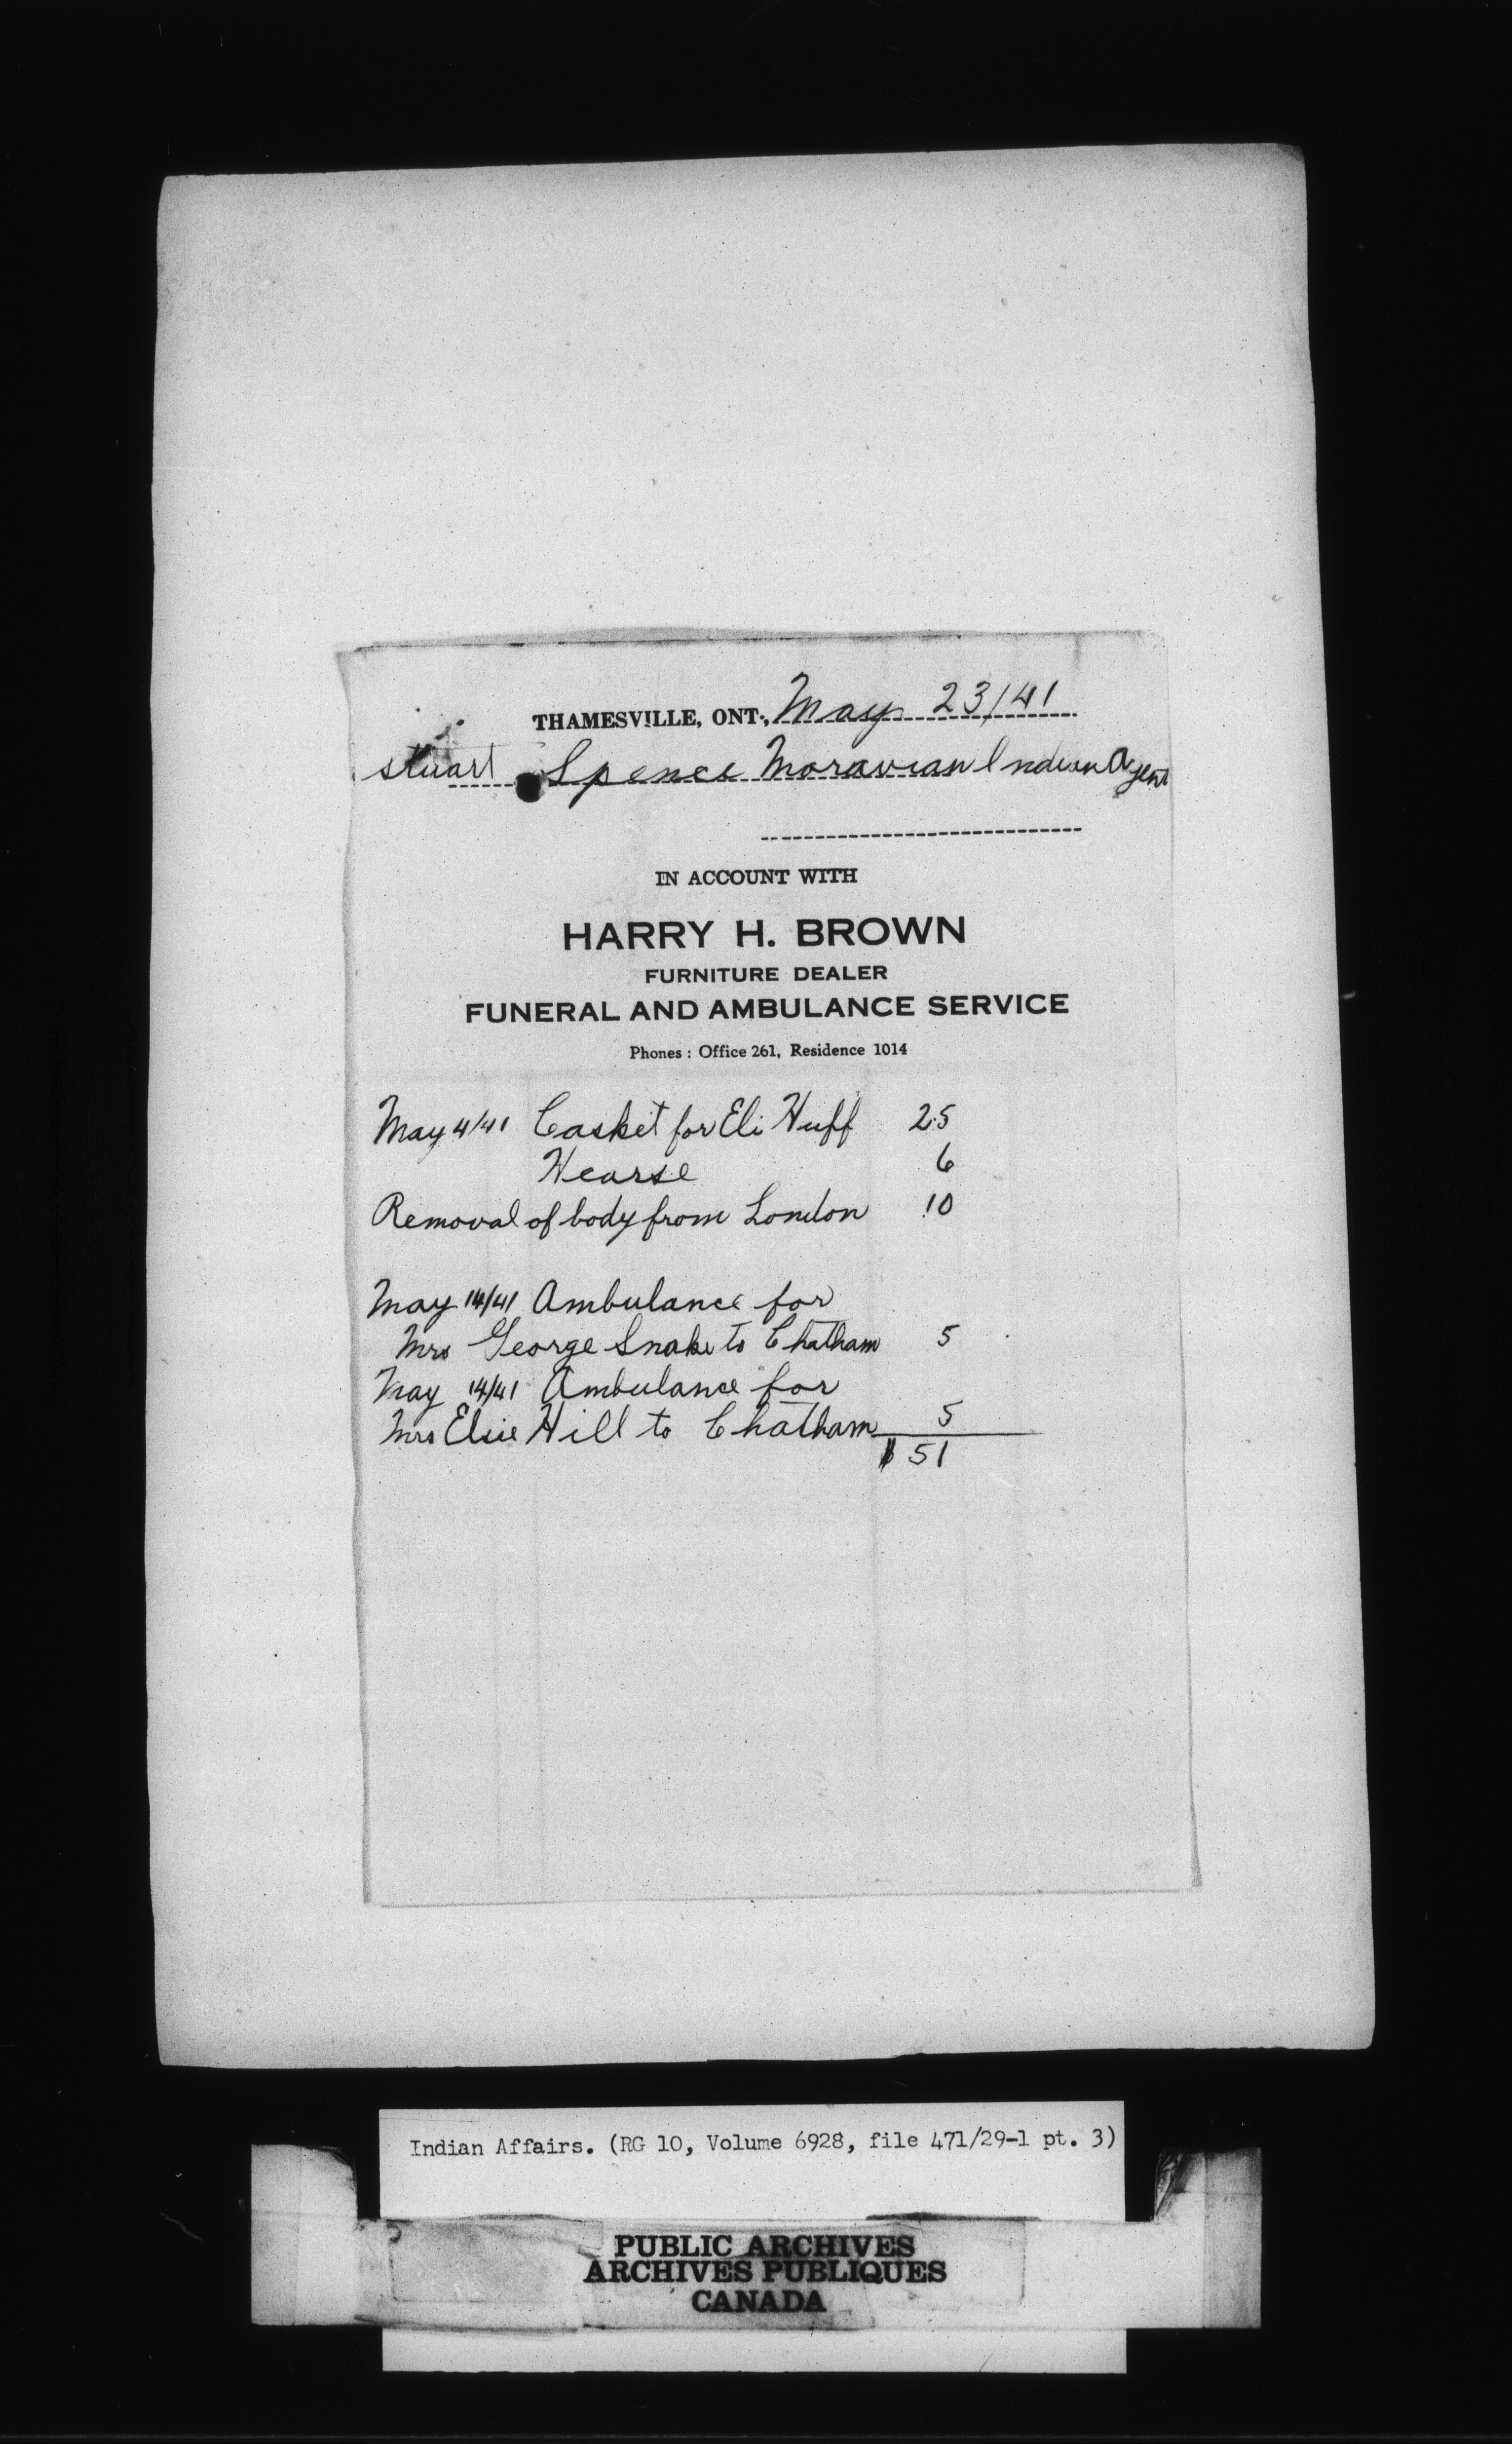 THAMESVILLE, ONT., May 23/41
Stuart Spence Moravian Indian Agent
IN ACCOUNT WITH
HARRY H. BROWN
FURNITURE DEALER
FUNERAL AND AMBULANCE SERVICE
Phones : Office 261, Residence 1014
May 4/41 Casket for Eli Huff 25
Hearse 6
Removal of body from London 10
May 14/41 Ambulance for
Mrs George Snake to Chatham 5
May 14/41 Ambulance for
Mrs Elsie Hill to Chatham 5
$ 51
Indian Affairs. (RG 10, Volume 6928, file 471/29-1 pt. 3)
PUBLIC ARCHIVES
ARCHIVES PUBLIQUES
CANADA